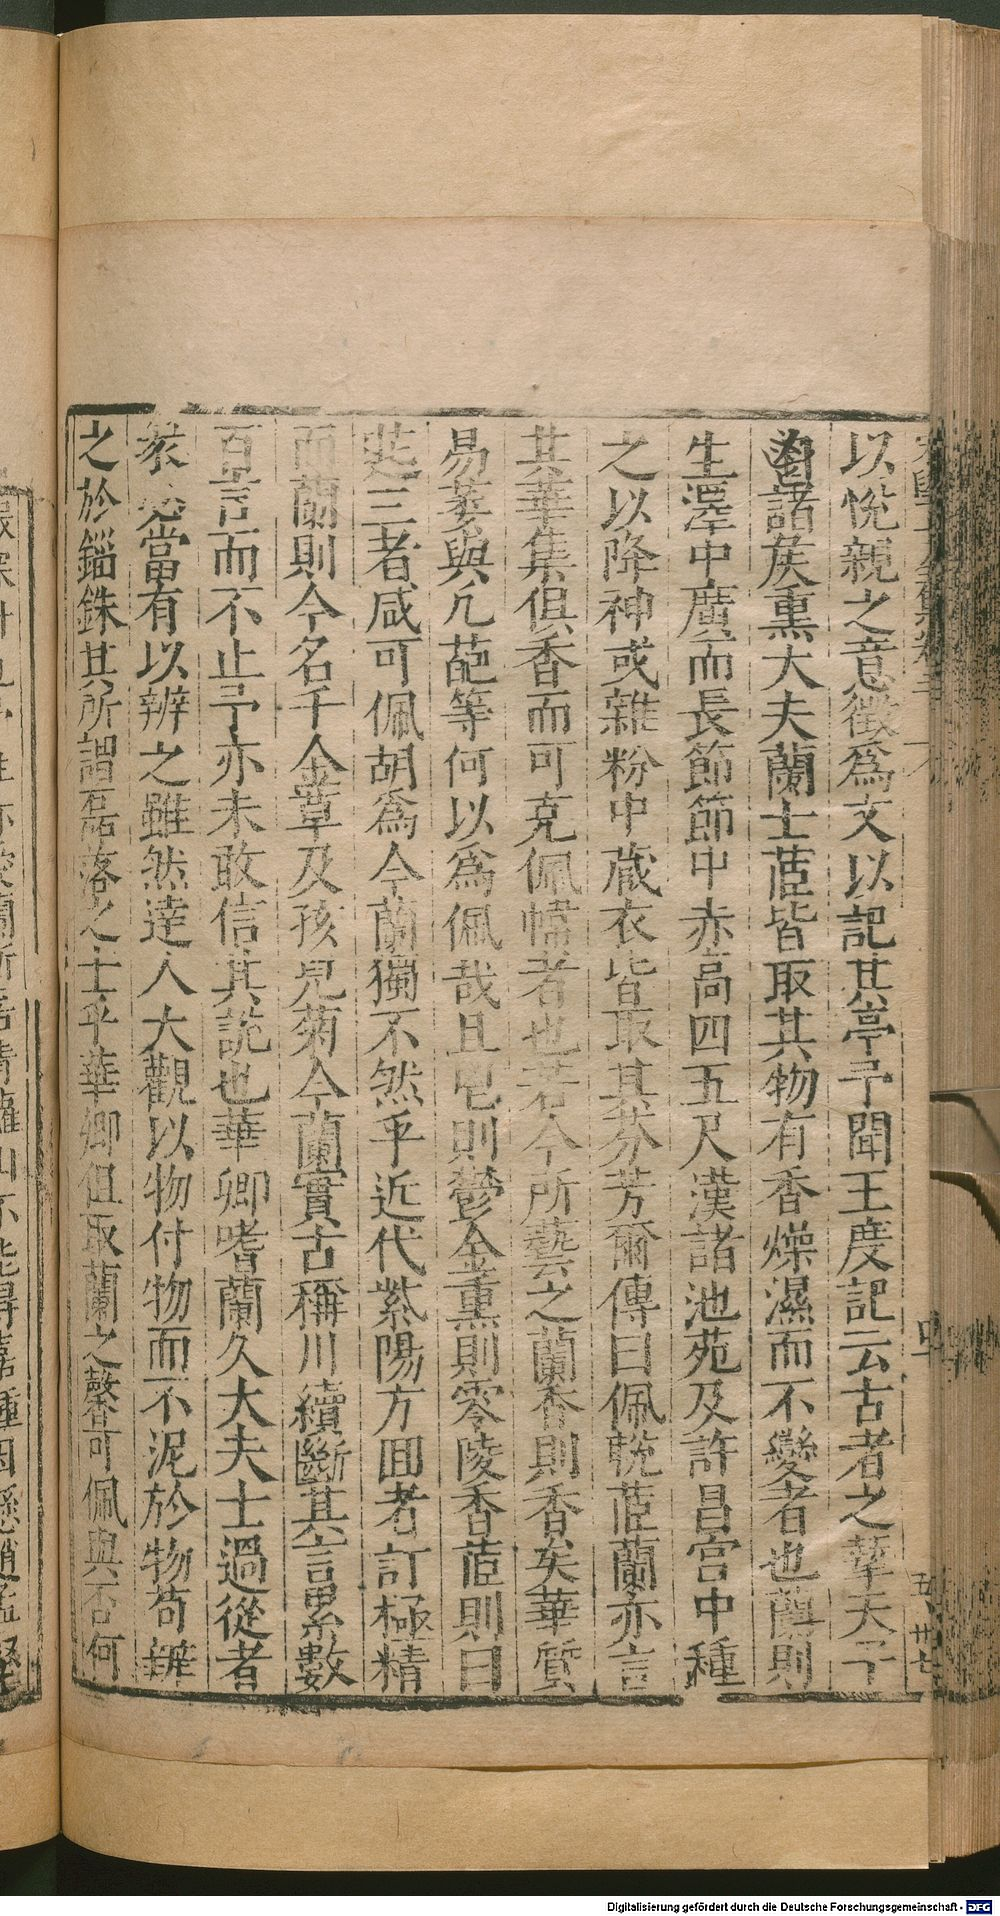 以悅親之意徵為文以記其亭予聞王度記云古者之摯天子
鬯諸矦熏大夫蘭士茝皆取其物有香燥濕而不變者也蘭則
生澤中廣而長節節中赤高四五尺漢諸池苑及許昌宮中種
之以降神或雜粉中藏衣皆取其芬芳爾傳曰佩帨茝蘭亦言
其華葉俱香而可充佩幃者也若今所藝之蘭香則香矣華質
易萎與凡葩等何以為佩哉且鬯則鬱金熏則零陵香茝則白
芷三者咸可佩胡為今蘭獨不然乎近代紫陽方回考訂極精
而蘭則今名千金草及孩兒菊今蘭實古稱川續斷其言累數
百言而不止予亦未敢信其說也華卿嗜蘭久大夫士過從者
衆 當有以辨之雖然達人大觀以物付物而不泥於物苟辨
之於錙銖其所謂磊落之士乎華卿但取蘭之馨可佩與否何
Digitalisierung gefördert durch die Deutsche Forschungsgemeinschaft - DFG